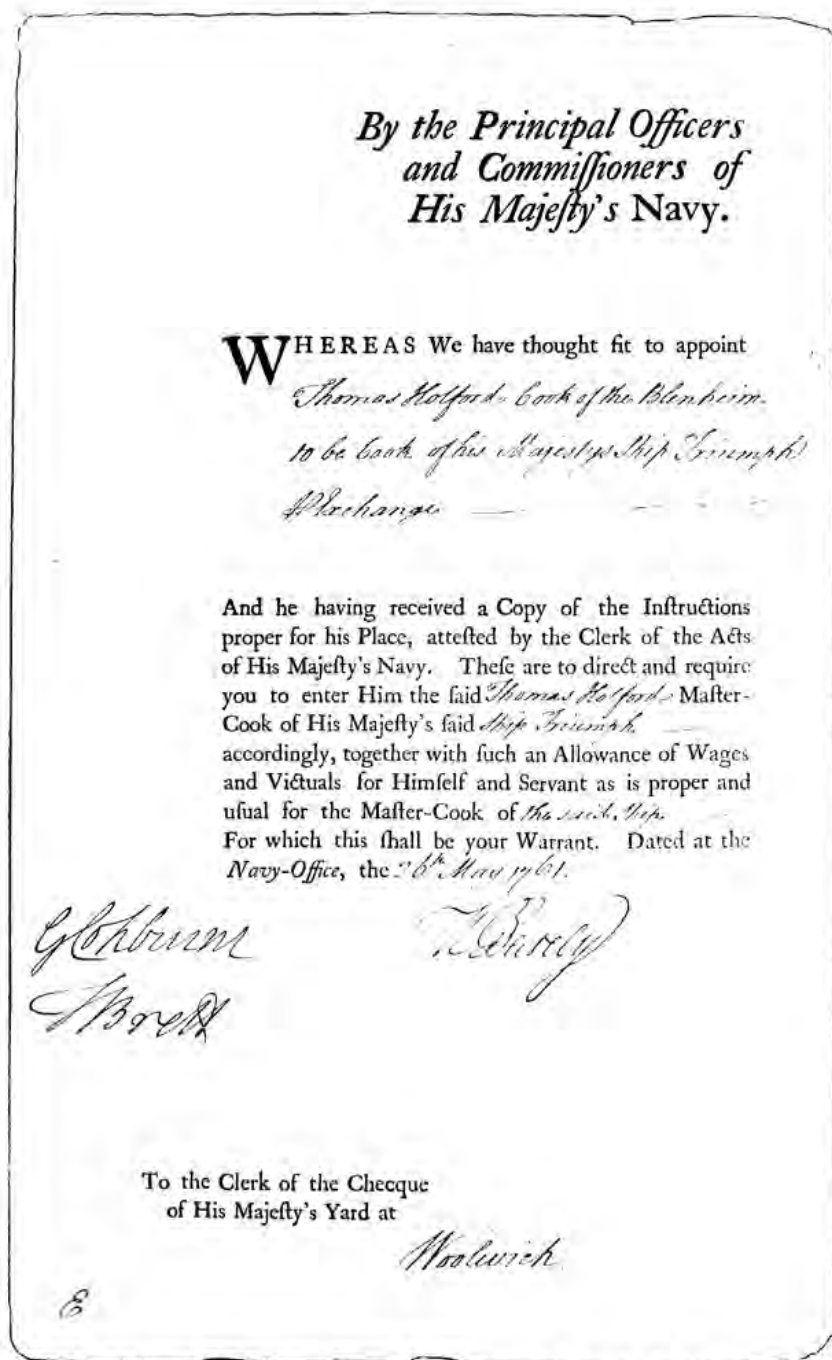 By the Principal Officers
and Commiſſioners of
His Majeſty's Navy.
WHEREAS We have thought fit to appoint
Thomas Holford Cook of the Blenheim
to be Cook of his Majestys Ship Triumph
Exchange
And he having received a Copy of the Inſtructions
proper for his Place, atteſted by the Clerk of the Acts
of His Majeſty's Navy. Theſe are to direct and require
you to enter Him the ſaid Thomas Holford Maſter-
Cook of His Majeſty's ſaid Ship Triumph
accordingly, together with ſuch an Allowance of Wages
and Victuals for Himſelf and Servant as is proper and
uſual for the Maſter-Cook of the said Ship.
For which this ſhall be your Warrant. Dated at the
Navy-Office, the 26th May 1761.
GCokburne
TBrett
To the Clerk of the Checque
of His Majeſty's Yard at
Woolwich
E